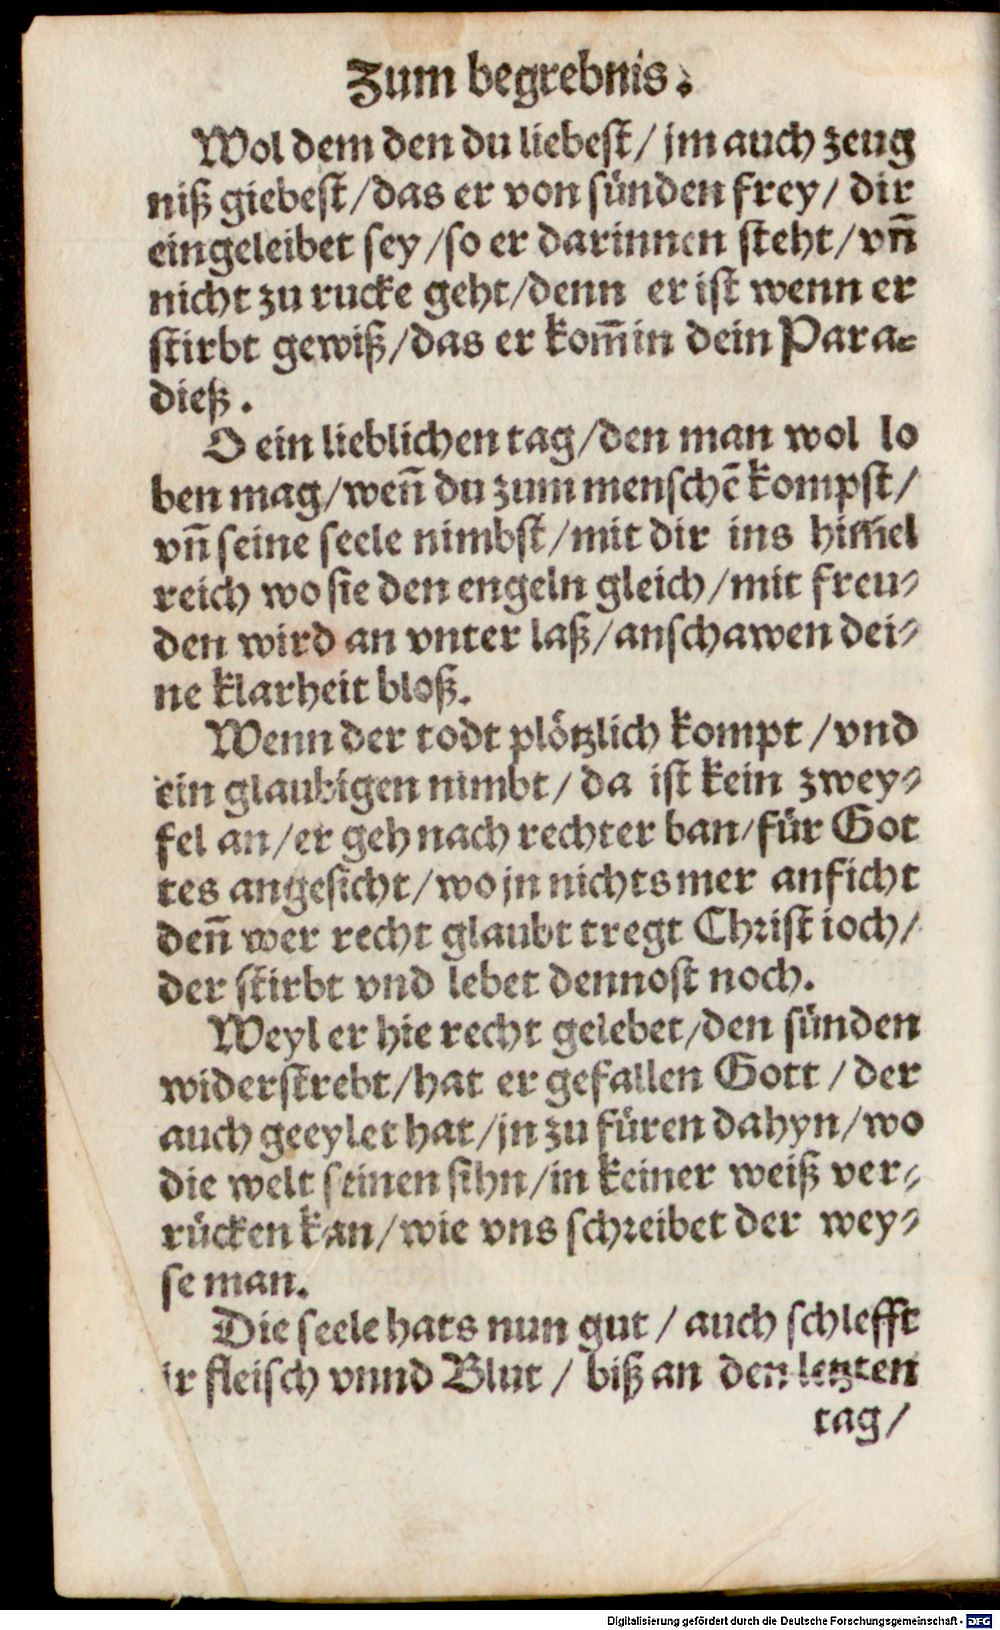 Zum begrebnis.
Wol dem den du liebest/ jm auch zeug
niß giebest/das er von sünden frey/ dir
eingeleibet sey/so er darinnen steht/vn̄
nicht zu rucke geht/denn er ist wenn er
stirbt gewiß/das er kom̄ in dein Para⸗
dieß.
O ein lieblichen tag/den man wol lo
ben mag/wen̄ du zum menschē kompst/
vn̄ seine seele nimbst/mit dir ins him̄el
reich wo sie den engeln gleich/mit freu⸗
den wird an vnter laß/anschawen dei⸗
ne klarheit bloß.
Wenn der todt plötzlich kompt/vnd
ein glaubigen nimbt/ da ist kein zwey⸗
fel an/er geh nach rechter ban/für Got
tes angesicht/wo jn nichts mer anficht
den̄ wer recht glaubt tregt Christ ioch/
der stirbt vnd lebet dennost noch.
Weyl er hie recht gelebet/den sünden
widerstrebt/hat er gefallen Gott/ der
auch geeylet hat/jn zu füren dahyn/wo
die welt seinen sihn/in keiner weiß ver⸗
rücken kan/wie vns schreibet der wey⸗
se man.
Die seele hats nun gut/ auch schlefft
ir fleisch vnnd Blut/ biß an den letzten
tag/
Digitalisierung gefördert durch die Deutsche Forschungsgemeinschaft - DFG